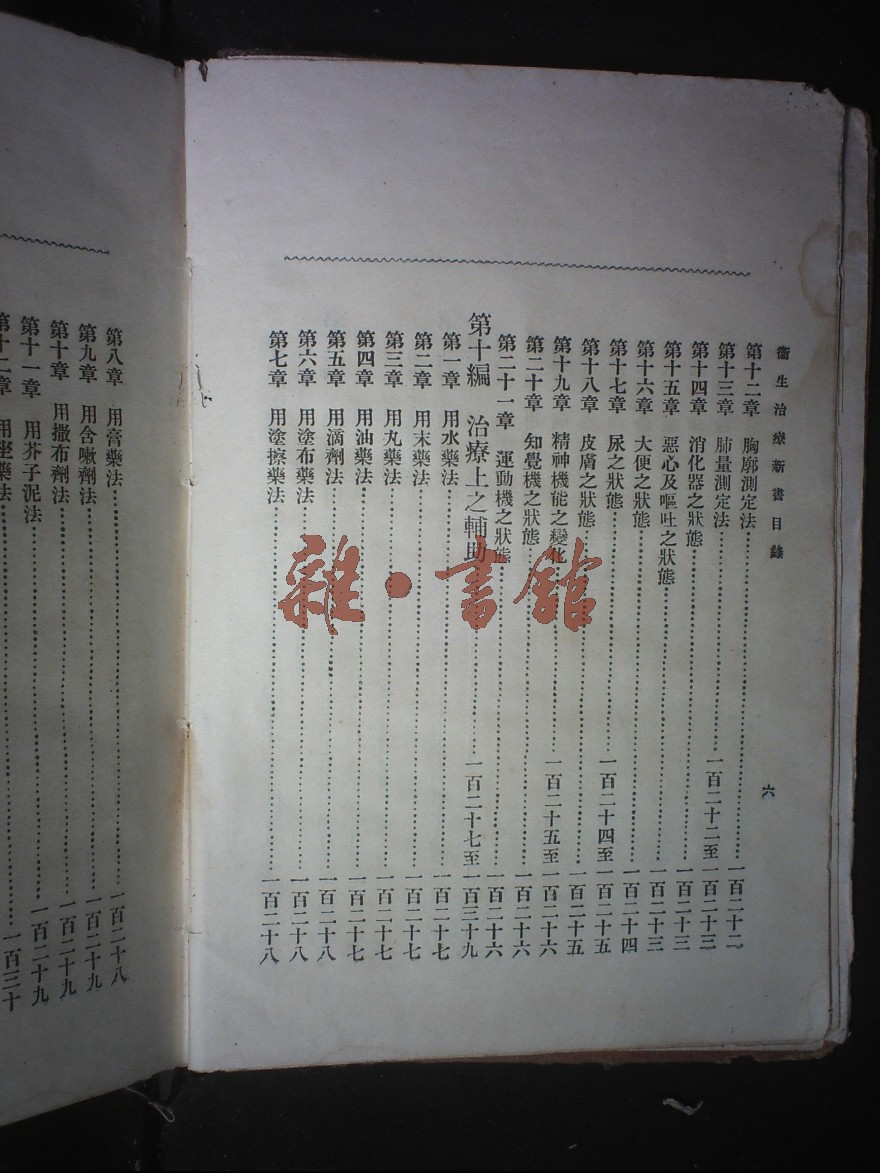 衞生治療新書目錄
六
第十二章 胸廓測定法……一百二十二
第十三章 肺量測定法……一百二十二至一百二十三
第十四章 消化器之狀態……一百二十三
第十五章 惡心及嘔吐之狀態……一百二十三
第十六章 大便之狀態……一百二十四
第十七章 尿之狀態……一百二十四至一百二十五
第十八章 皮膚之狀態……一百二十五
第十九章 精神機能之變化……一百二十五至一百二十六
第二十章 知覺機之狀態……一百二十六
第二十一章 運動機之狀態……一百二十六
第十編 治療上之輔助……一百二十七至一百三十九
第一章 用水藥法……一百二十七
第二章 用末藥法……一百二十七
第三章 用丸藥法……一百二十七
第四章 用油藥法……一百二十七
第五章 用滴劑法……一百二十八
第六章 用塗布藥法……一百二十八
第七章 用塗擦藥法……一百二十八
第八章 用膏藥法……一百二十八
第九章 用含嗽劑法……一百二十九
第十章 用撒布劑法……一百二十九
第十一章 用芥子泥法……一百二十九
第十二章 用坐藥法……一百三十
雜·書館